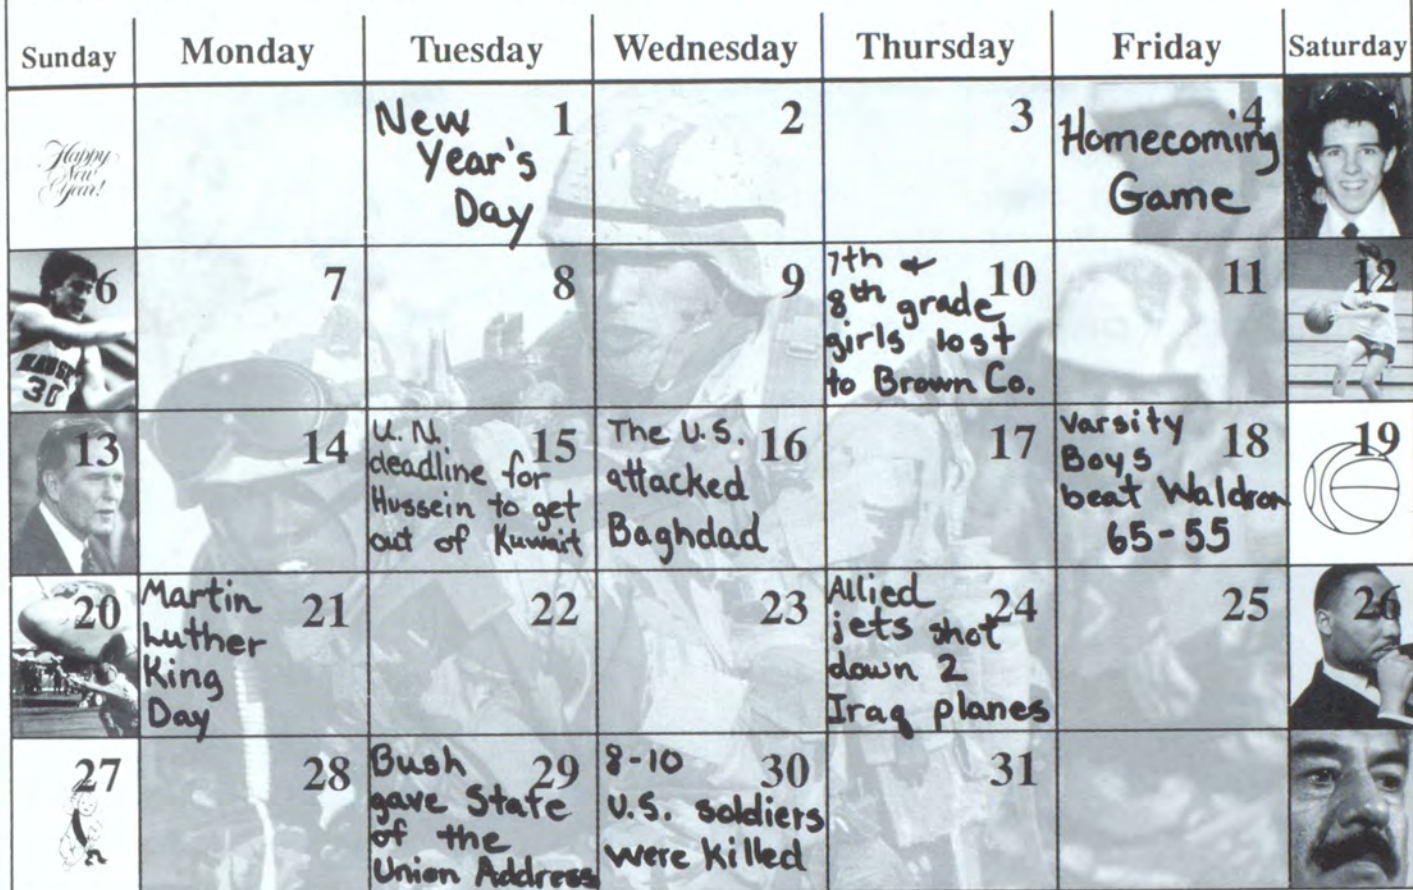 Sunday Monday Tuesday Wednesday Thursday Friday Saturday
Happy
New
Year!
New 1
Year's
Day
2
3
4
Homecoming
Game
6
30
7
8
9
7th & 10
8th grade
girls lost
to Brown Co.
11
12
13
14
U.N. 15
deadline for
Hussein to get
out of Kuwait
The U.S. 16
attacked
Baghdad
17
Varsity 18
Boys
beat Waldron
65-55
19
20
Martin 21
Luther
King
Day
22
23
Allied 24
jets shot
down 2
Iraq planes
25
26
27
28
Bush 29
gave State
of the
Union Address
8-10 30
U.S. soldiers
were killed
31